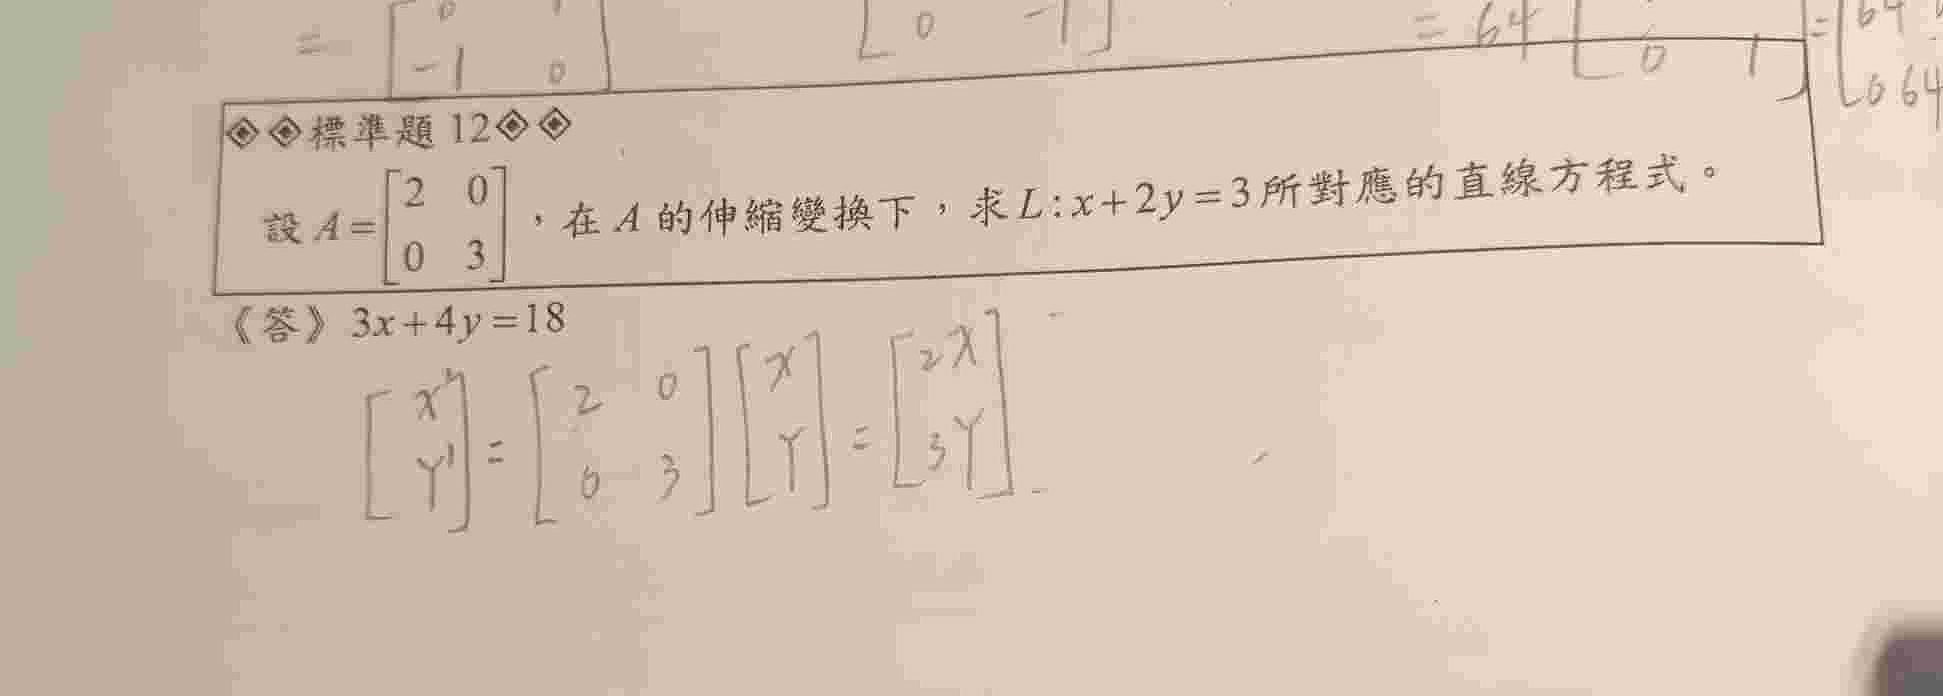 = [0 1; -1 0] [0 -1] = 64 [0 1] = [64; 0 64]
◈◈標準題 12◈◈
設 A = [2 0; 0 3],在 A 的伸縮變換下,求 L: x+2y=3 所對應的直線方程式。
《答》3x+4y=18
[x' ; Y'] = [2 0; 0 3] [x; Y] = [2x; 3Y]